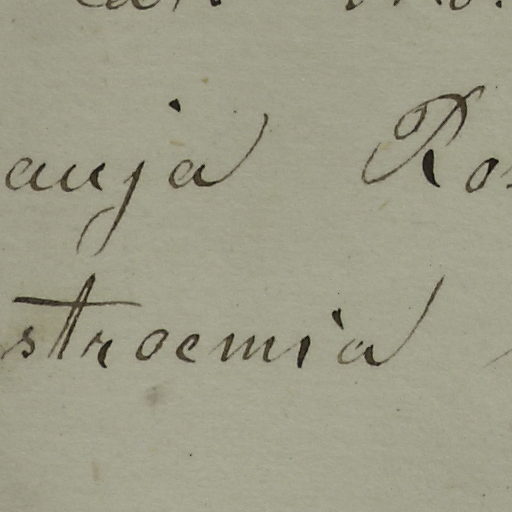 auja Ro
stroemia